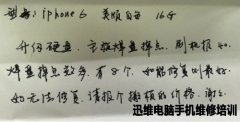 型号：iphone 6 美版 白色 16G
升级硬盘，主板焊盘掉点，刷机报40.
焊盘掉点较多，有8个，如能修复则最好
如无法修复，请报个搬板的价格，谢谢
迅维电脑手机维修培训